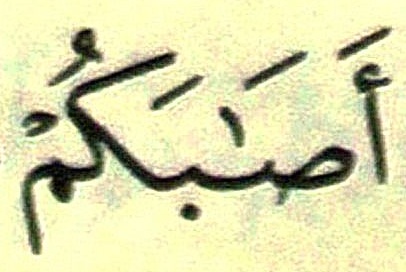 أَصَٰبَكُمْ